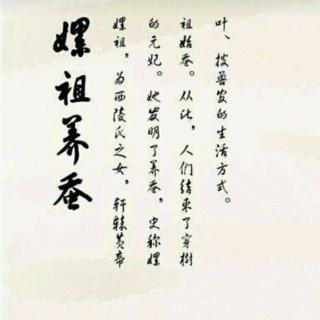 嫘祖养蚕
嫘祖，为西陵氏之女，轩辕黄帝
的元妃。她发明了养蚕，史称嫘
祖始蚕。从此，人们结束了穿树
叶、披兽皮的生活方式。